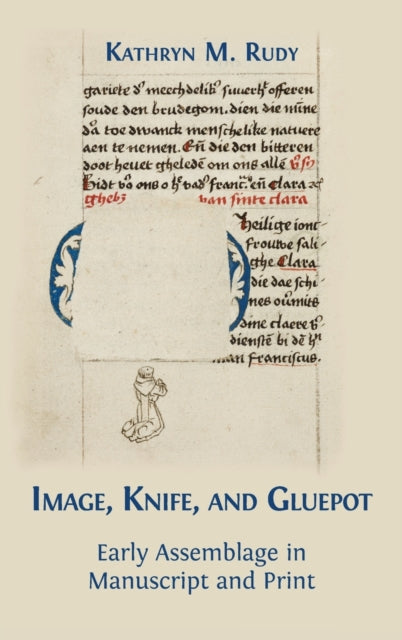 KATHRYN M. RUDY
gariete dʼ meechdelikʼ suuerhʼ offeren
soude den brudegom. dien die mīne
dʼa toe dwanck menschelike natuere
aen te nemen. Eñ die den bitteren
doot heuet gheledē om ons allē
Bidt vʼo ons o hʼ vadʼ francʼ. eñ Clara
ghebʒ van sinte clara
Heilige ionc
frouwe sali
ghe Clara
die dae schi
nes oūmits
dine claere vʼ
dienstē bi dē hʼ
man franciscus.
IMAGE, KNIFE, AND GLUEPOT
Early Assemblage in
Manuscript and Print